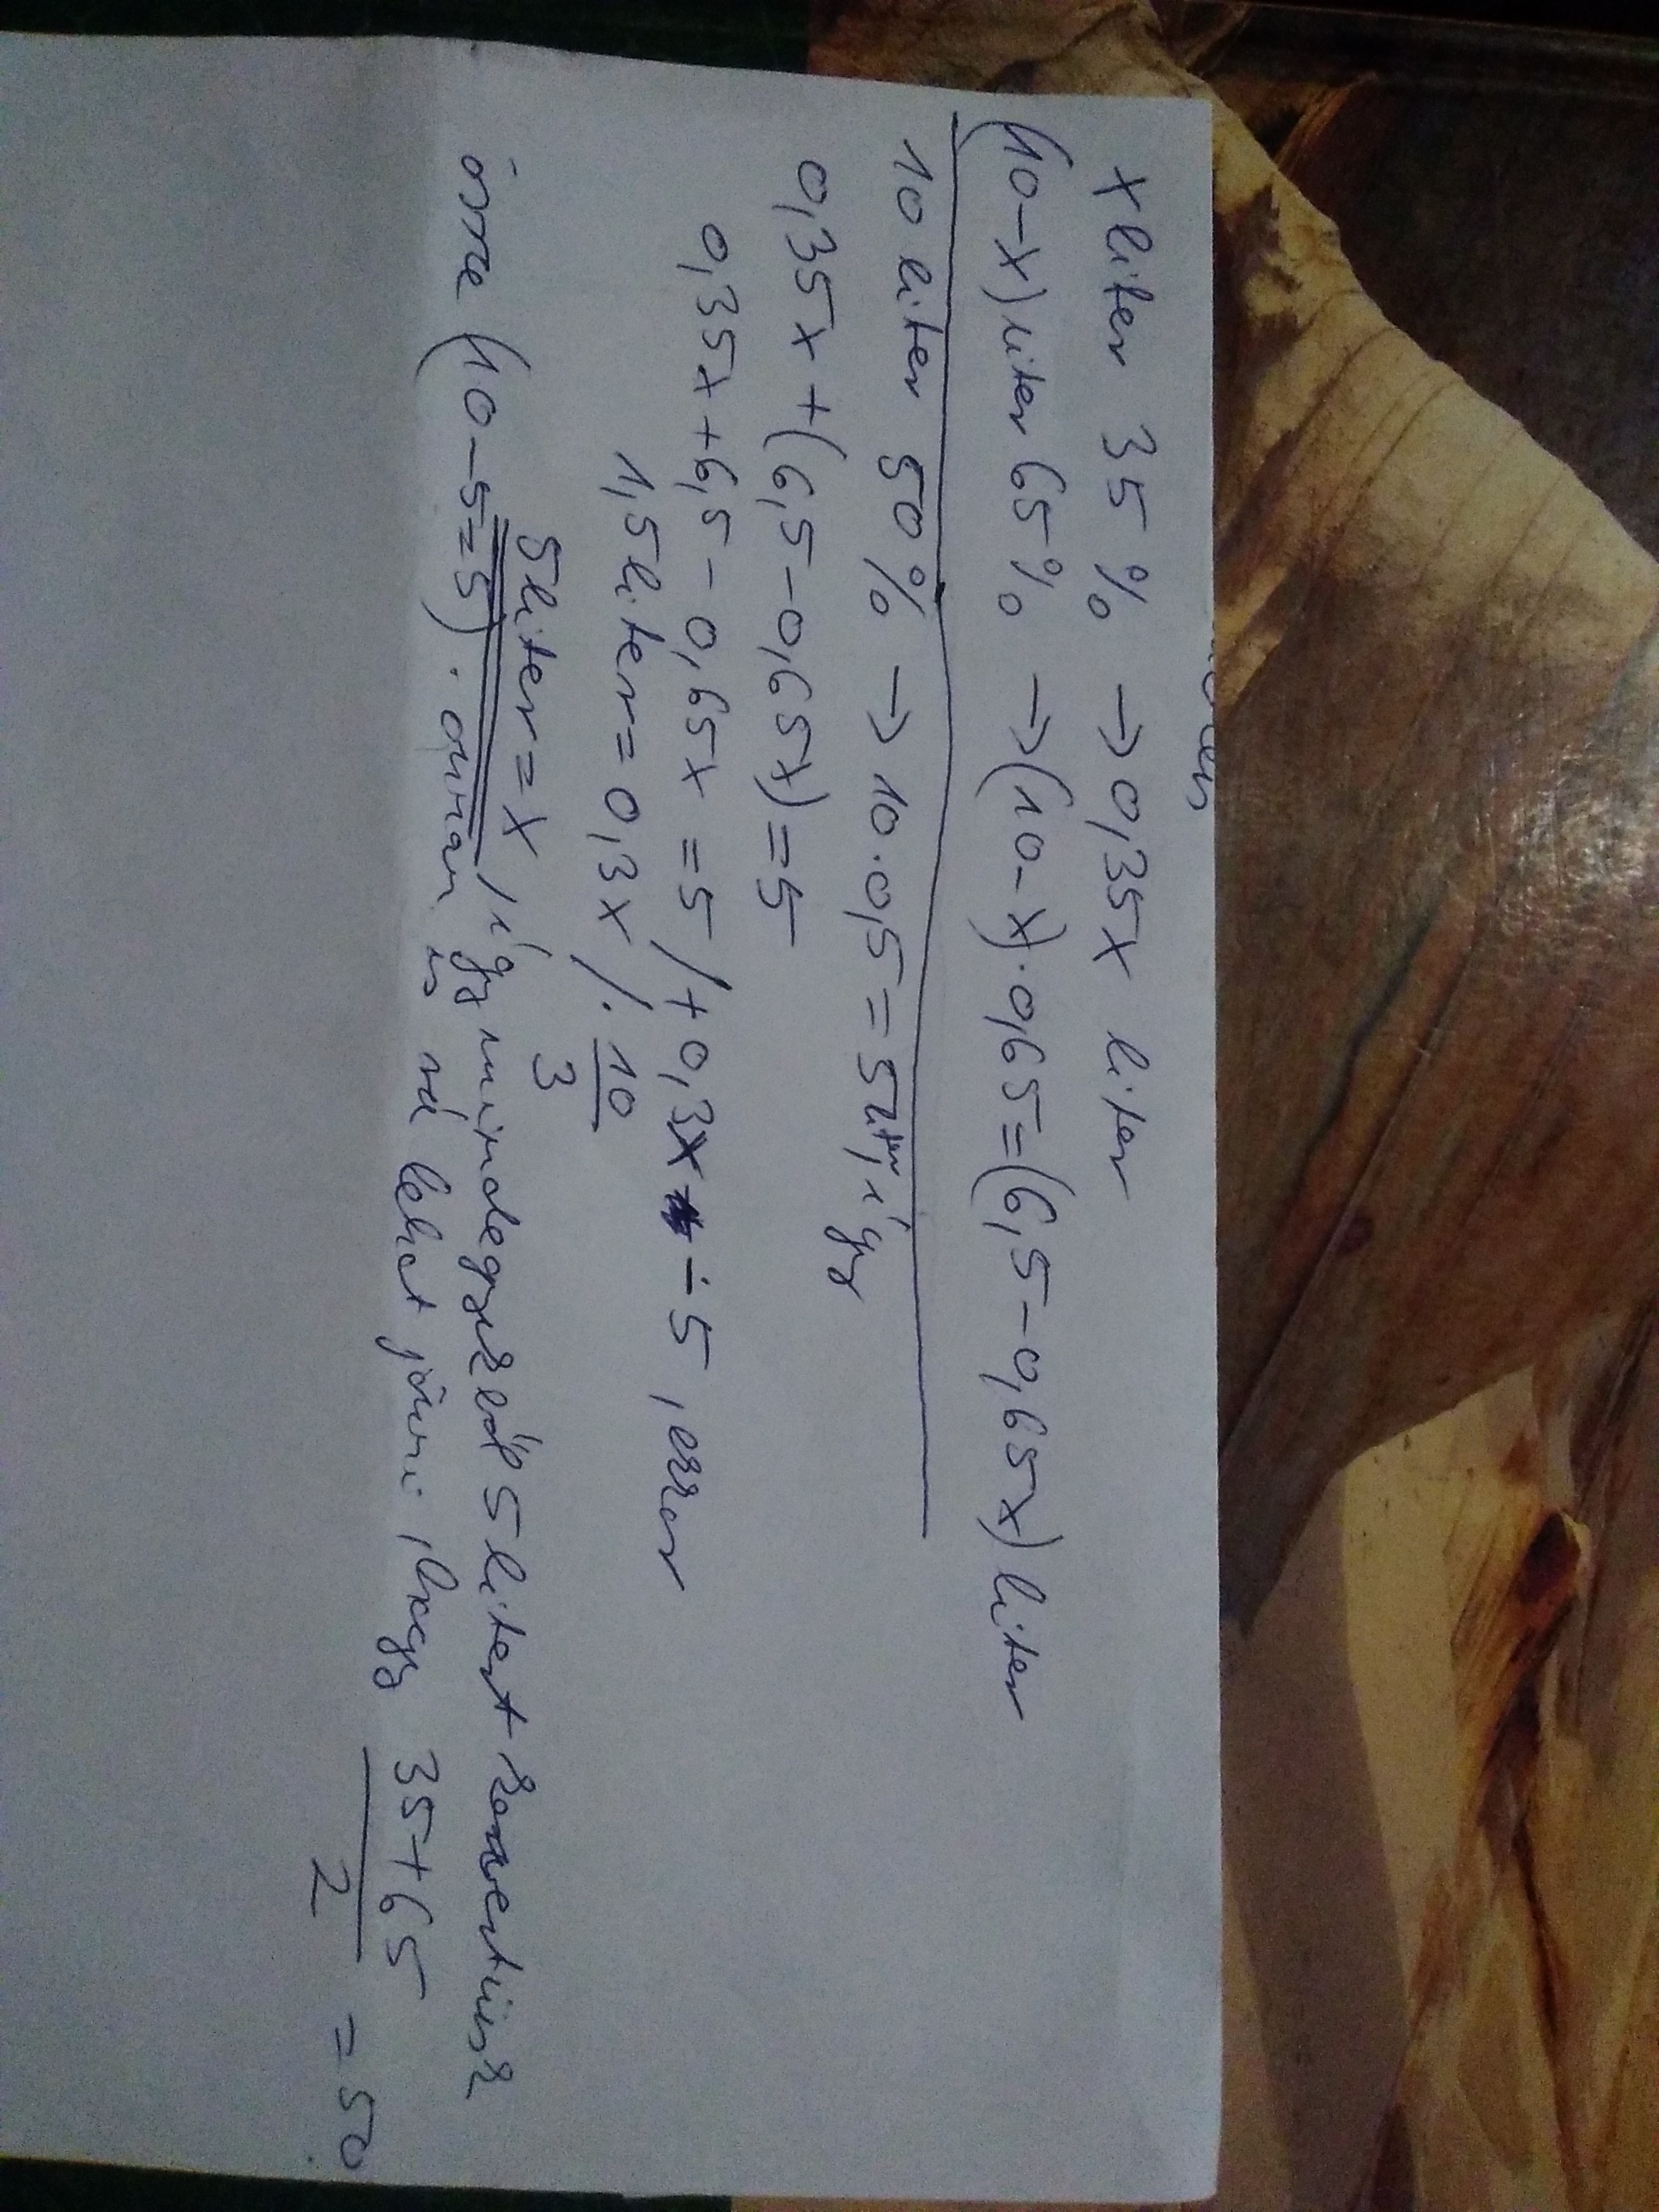 x liter 35 % → 0,35x liter
(10-x) liter 65% → (10-x)·0,65=(6,5-0,65x) liter
10 liter 50% → 10·0,5=5 liter, így
0,35x+(6,5-0,65x)=5
0,35x+6,5-0,65x=5 /+0,3x -5, ezzel
1,5 liter=0,3x /·10/3
5 liter=x, így mindegyikből 5 litert
össze (10-5=5). is rá lehet jönni, hogy 35+65/2 = 50.